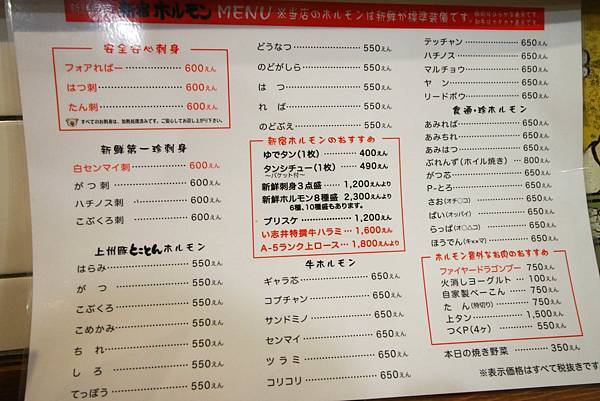 新宿ホルモン MENU ※当店のホルモンは新鮮が標準装備です。
安全安心刺身
フォアればー 600えん
はつ刺 600えん
たん刺 600えん
すべてのお刺身は、加熱処理済みです。ご安心してお召し上がり下さい。
新鮮第一珍刺身
白センマイ刺 600えん
がつ刺 650えん
ハチノス刺 650えん
こぶくろ刺 650えん
上州豚とことんホルモン
はらみ 550えん
がつ 550えん
こぶくろ 550えん
こめかみ 550えん
ちれ 550えん
しろ 550えん
てっぽう 550えん
どうなつ 550えん
のどがしら 550えん
はつ 550えん
れば 550えん
のどぶえ 550えん
新宿ホルモンのおすすめ
ゆでタン(1枚) 400えん
タンシチュー(1枚) 490えん
～バケット付～
新鮮刺身3点盛 1,200えんより
新鮮ホルモン8種盛 2,300えんより
6種、10種盛もあります。
ブリスケ 1,200えん
い志井特撰牛ハラミ 1,600えん
A-5ランク上ロース 1,800えんより
牛ホルモン
ギャラ芯 650えん
コプチャン 650えん
サンドミノ 650えん
センマイ 650えん
ツラミ 650えん
コリコリ 650えん
テッチャン 650えん
ハチノス 650えん
マルチョウ 650えん
ヤン 650えん
リードボウ 650えん
食通・珍ホルモン
あみれば 650えん
あみちれ 650えん
あみはつ 650えん
ぶれんず(ホイル焼き) 800えん
がつ芯 650えん
P-とろ 650えん
さお(オチ〇コ) 650えん
ぱい(オッパイ) 650えん
らっぱ(オ〇△コ) 650えん
ほうでん(キ××マ) 650えん
ホルモン意外なお肉のおすすめ
ファイヤードラゴンブー 750えん
火消しヨーグルト 100えん
自家製べーこん 750えん
たん(特切り) 750えん
上タン 1,500えん
つくP(4ヶ) 550えん
本日の焼き野菜 350えん
※表示価格はすべて税抜きです